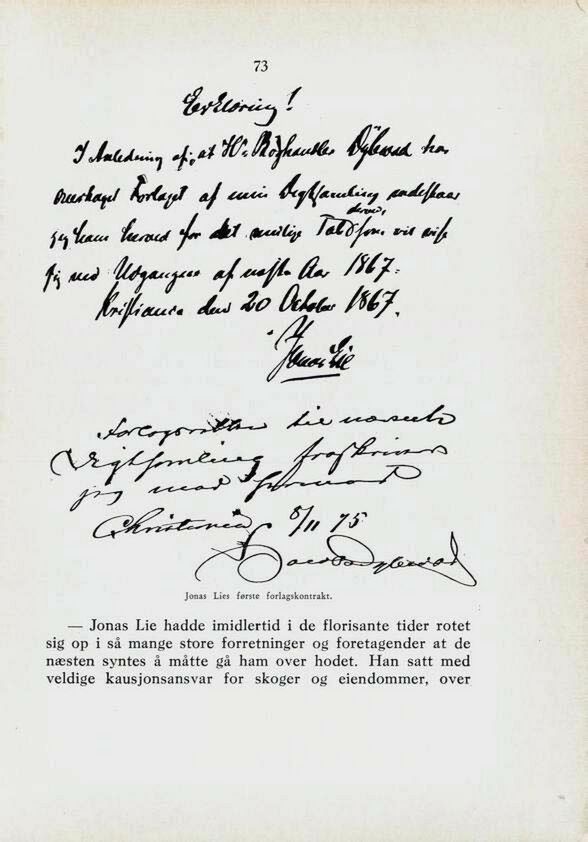 73
Erklæring!
I Anledning af, at Hr. Boghandler Dybwad har
overtaget Forlaget af min Digtsamling indestaar
jeg ham herved for det mulige Tab, som derved, vil vise
sig ved Udgangen af næste Aar 1867.
Kristiania den 20 October 1867.
Jonas Lie
Forlagsretten til nævnte
Digtsamling fraskriver
jeg mig hermed
Christiania 8/11 75
Dybwad
Jonas Lies første forlagskontrakt.
— Jonas Lie hadde imidlertid i de florisante tider rotet
sig op i så mange store forretninger og foretagender at de
næsten syntes å måtte gå ham over hodet. Han satt med
veldige kausjonsansvar for skoger og eiendommer, over